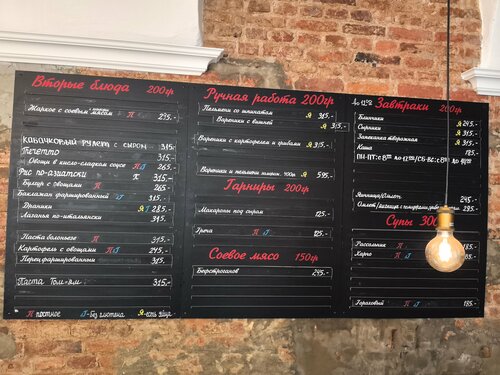 Вторые блюда 200гр
Жаркое с соевым мясом П 295.-
КАБАЧКОВЫЙ РУЛЕТ С СЫРОМ 315.
315.
Овощи в кисло-сладком соусе П Г 265.
Рис по-азиатски 315.
Булгур с овощами П 265.
Баклажан фаршированный Г 315.-
Драники Я Г 285.-
Лазанья по-итальянски 315.-
Паста болоньезе П 315.-
Картофель с овощами П Г 245.-
Перец фаршированный 315.-
Паста Том-ям 315.-
П постное Г-без глютена Я-есть яйцо
Ручная работа 200гр
Пельмени со шпинатом Я 315.-
Вареники с вишней Я 315.-
Вареники с картофелем и грибами Я 315.-
Вареники и пельмени заморож. 400гр Я 595.-
Гарниры 200гр
Макароны под сыром 125.-
Греча П Г 125.-
Соевое мясо 150гр
Бефстроганов 245.-
До 12:58 Завтраки 200гр
Блинчики 245.-
Сырники Я 315.-
Запеканка творожная Я 315.-
Каша 185.-
ПН-ПТ: с 8:00 до 12:58/СБ-ВС: с 8:00 до
Яичница/Омлет 245.-
Омлет 295.-
Супы 300
Рассольник П 185.-
Харчо П Г 185.-
Гороховый П 195.-